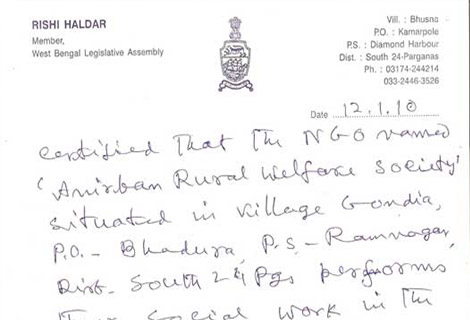 RISHI HALDAR
Member,
West Bengal Legislative Assembly
Vill. : Bhusna
P.O. : Kamarpole
P.S. : Diamond Harbour
Dist. : South 24-Parganas
Ph. : 03174-244214
033-2446-3526
Date 12.1.10
certified that the NGO named
'Anirban Rural Welfare Society'
situated in village Gondia,
P.O. - Bhadura, P.S. - Ramnagar,
Dist- South 24 Pgs performs
social work in the